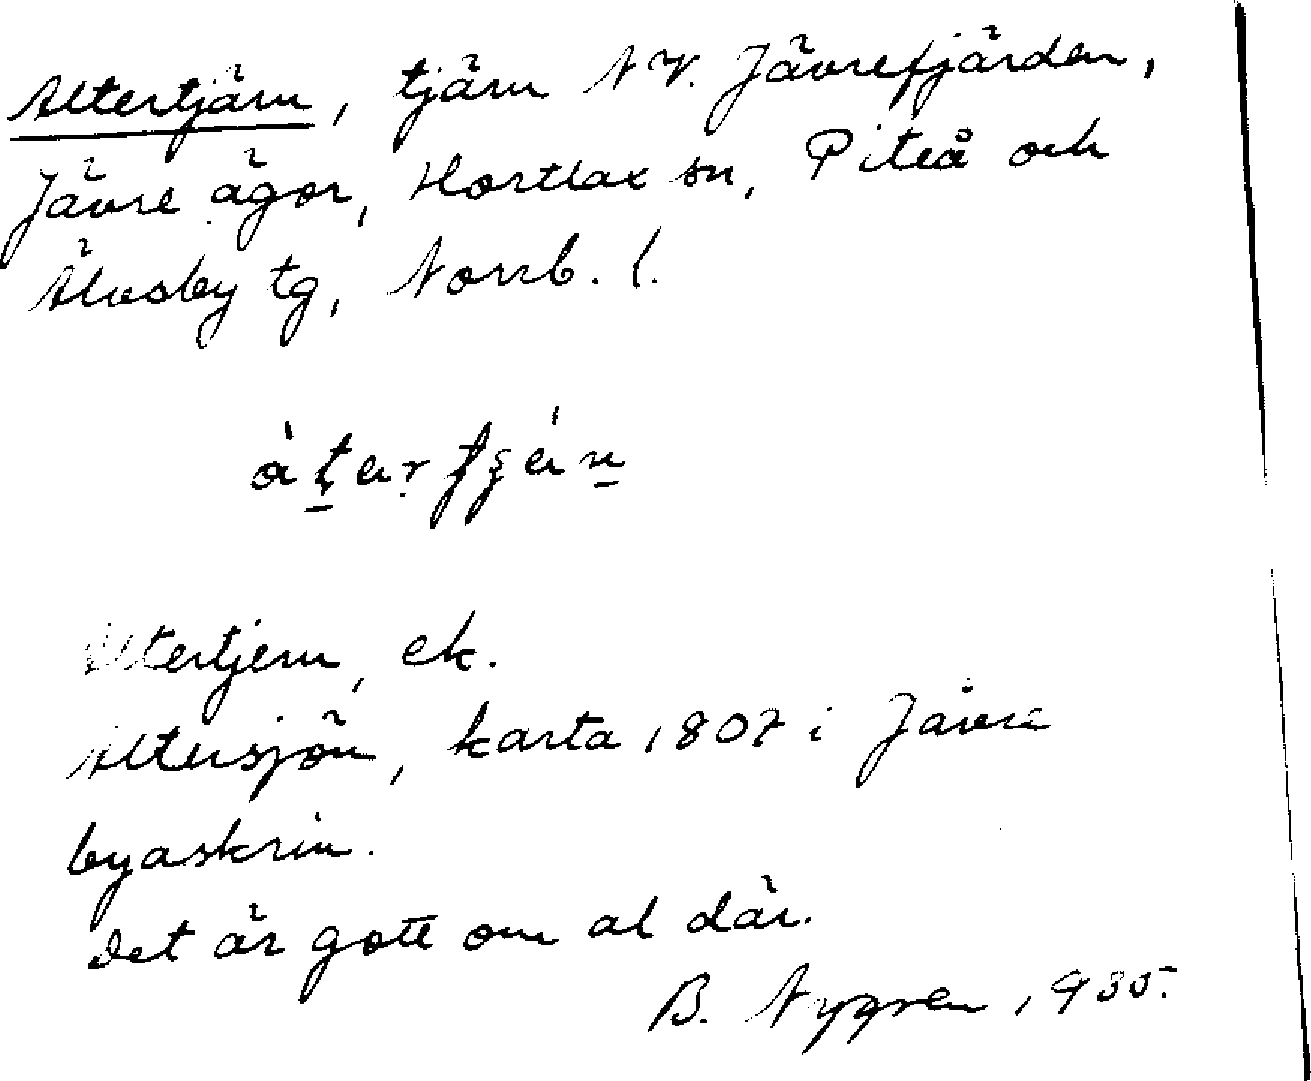 Altertjärn, tjärn NV. Jävrefjärden,
Jävre ägor, Hortlax sn, Piteå och
Älvsby tg, Norrb. l.
Altertjern, ek.
Altersjön, karta 1807 i Jävre
byaskrin.
Det är gott om al där.
B. Nygren 1935.